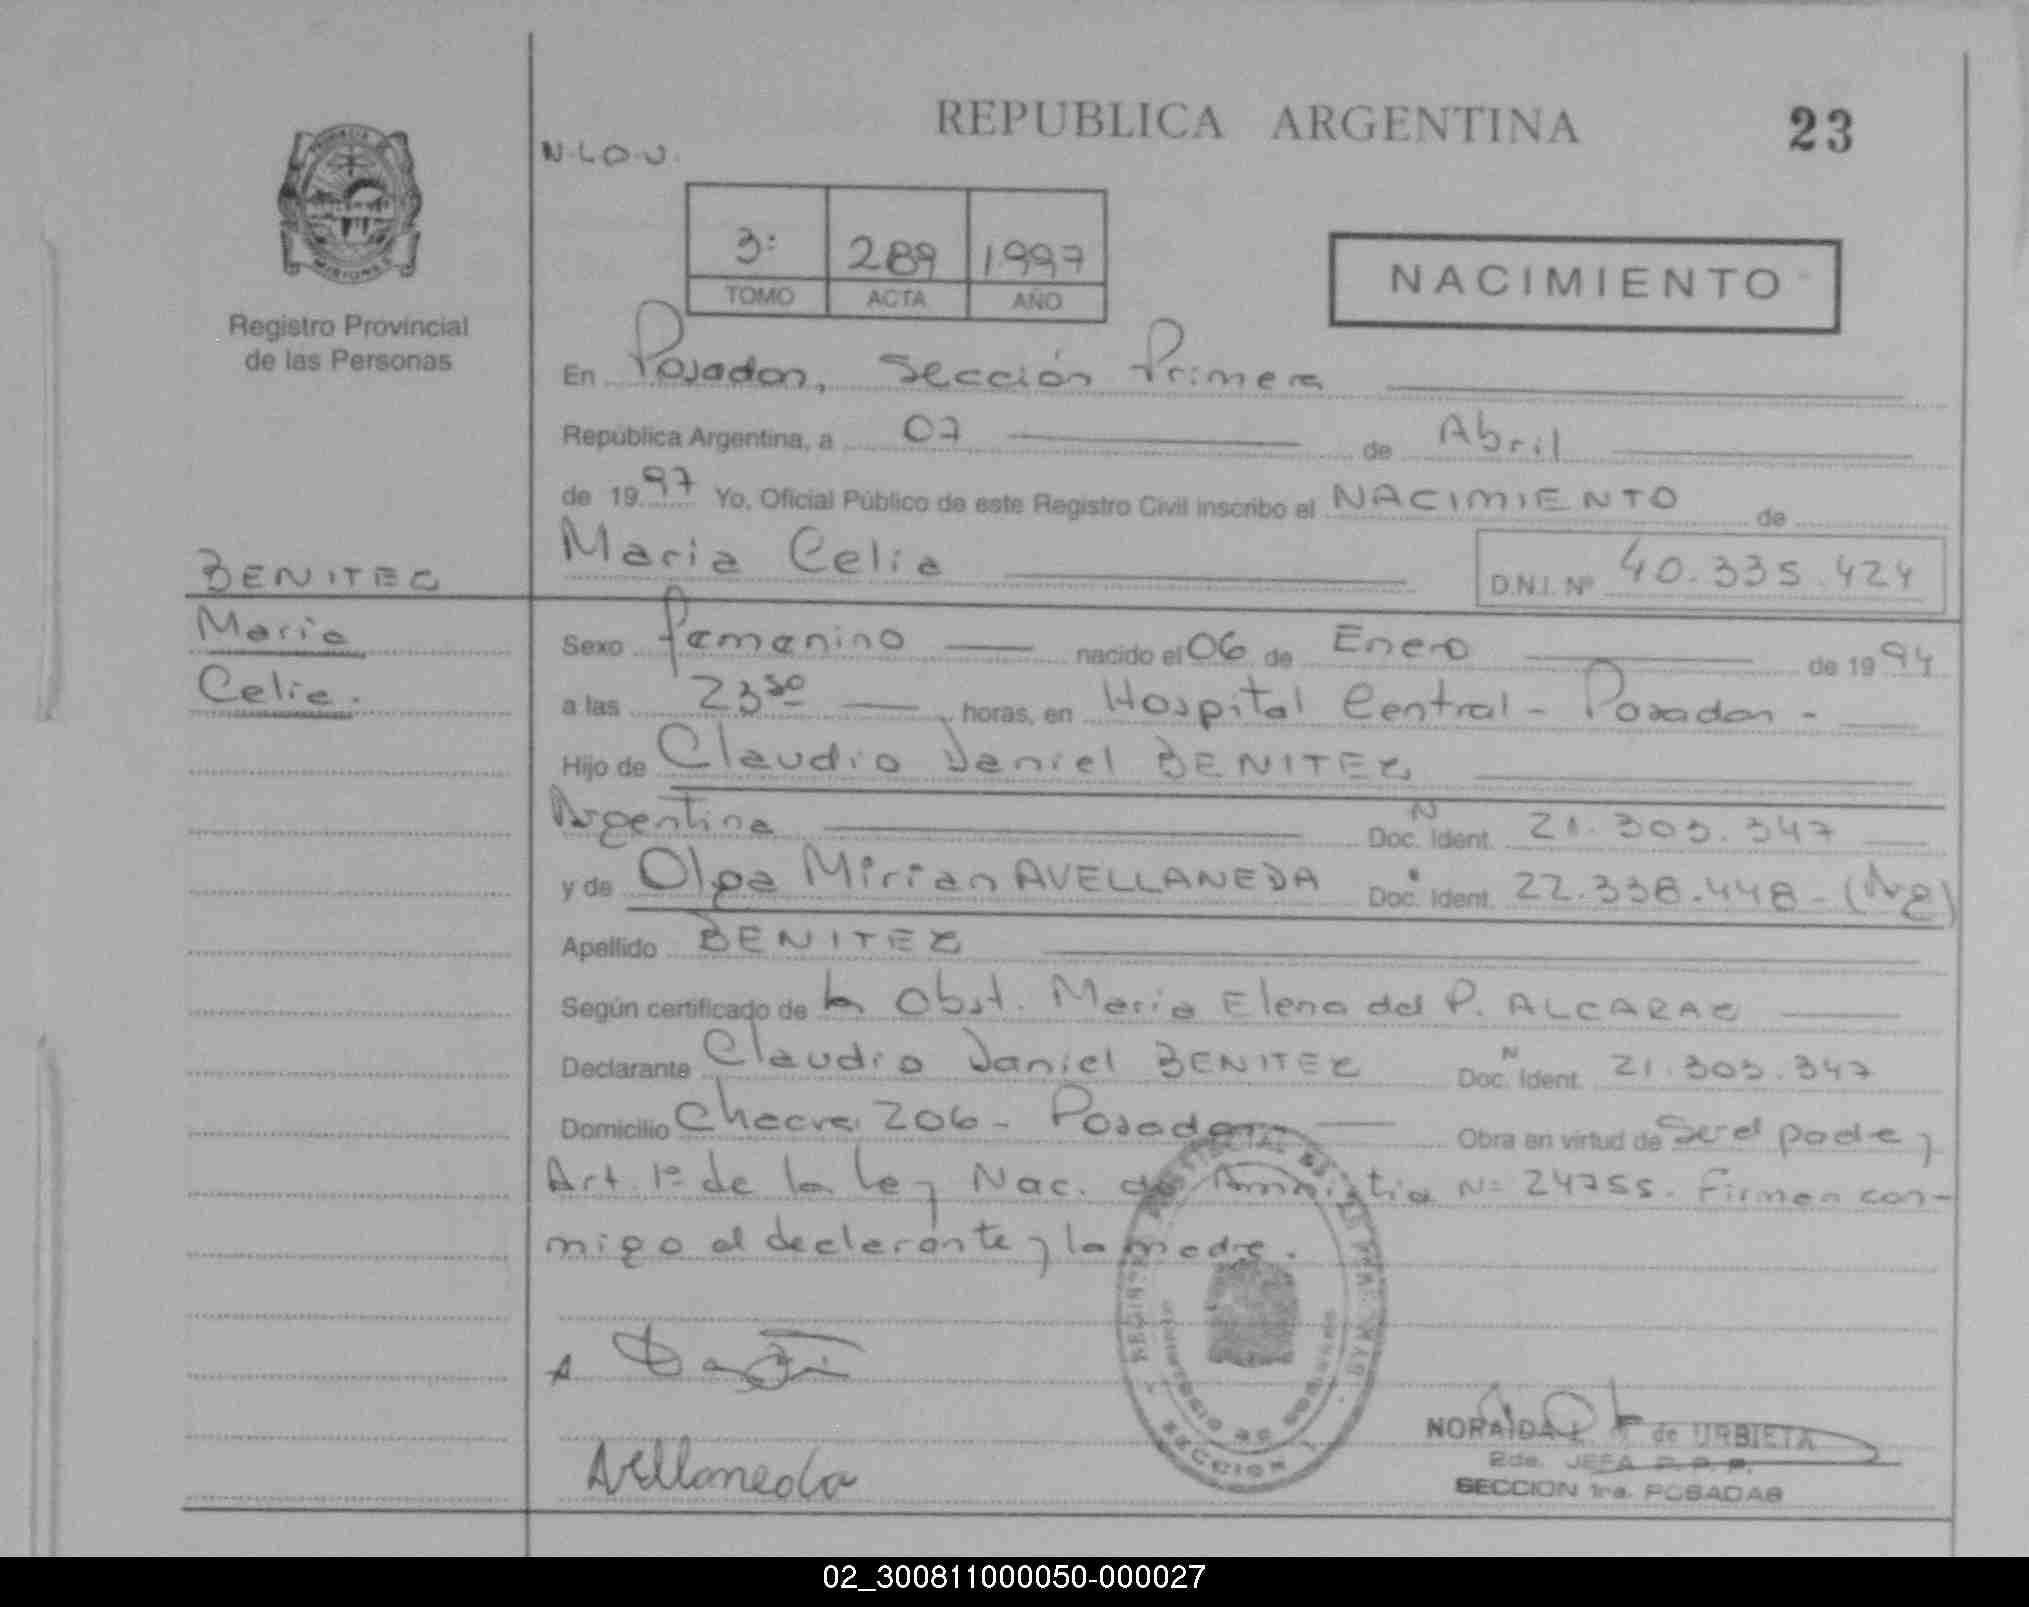 REPUBLICA ARGENTINA
23
N.L.O.U.
3:
289
1997
TOMO
ACTA
AÑO
NACIMIENTO
MISIONES
Registro Provincial
de las Personas
En Posadas, Sección Primera
República Argentina, a 07 de Abril
de 1997 Yo, Oficial Público de este Registro Civil inscribo el NACIMIENTO de
Maria Celia
D.N.I. Nº 40.335.424
BENITEZ
Maria
Celia.
Sexo femenino nacido el 06 de Enero de 1994
a las 23 30 horas, en Hospital Central - Posadas -
Hijo de Claudio Daniel BENITEZ
Argentina Doc. Ident. N 21.303.347
y de Olga Mirian AVELLANEDA Doc. Ident. 22.338.448 - (Arg)
Apellido BENITEZ
Según certificado de la Obst. Maria Elena del P. ALCARAZ
Declarante Claudio Daniel BENITEZ Doc. Ident. N 21.303.347
Domicilio Chacra 206 - Posadas Obra en virtud de Ser el padre y
Art. 1º de la Ley Nac. de Amnistia Nº 24755. Firman con-
migo el declarante y la madre.
Avellaneda
SECCION 1
NORAIDA de URBIETA
2da. JEFA R. P. P.
SECCION 1ra. POSADAS
02_300811000050-000027